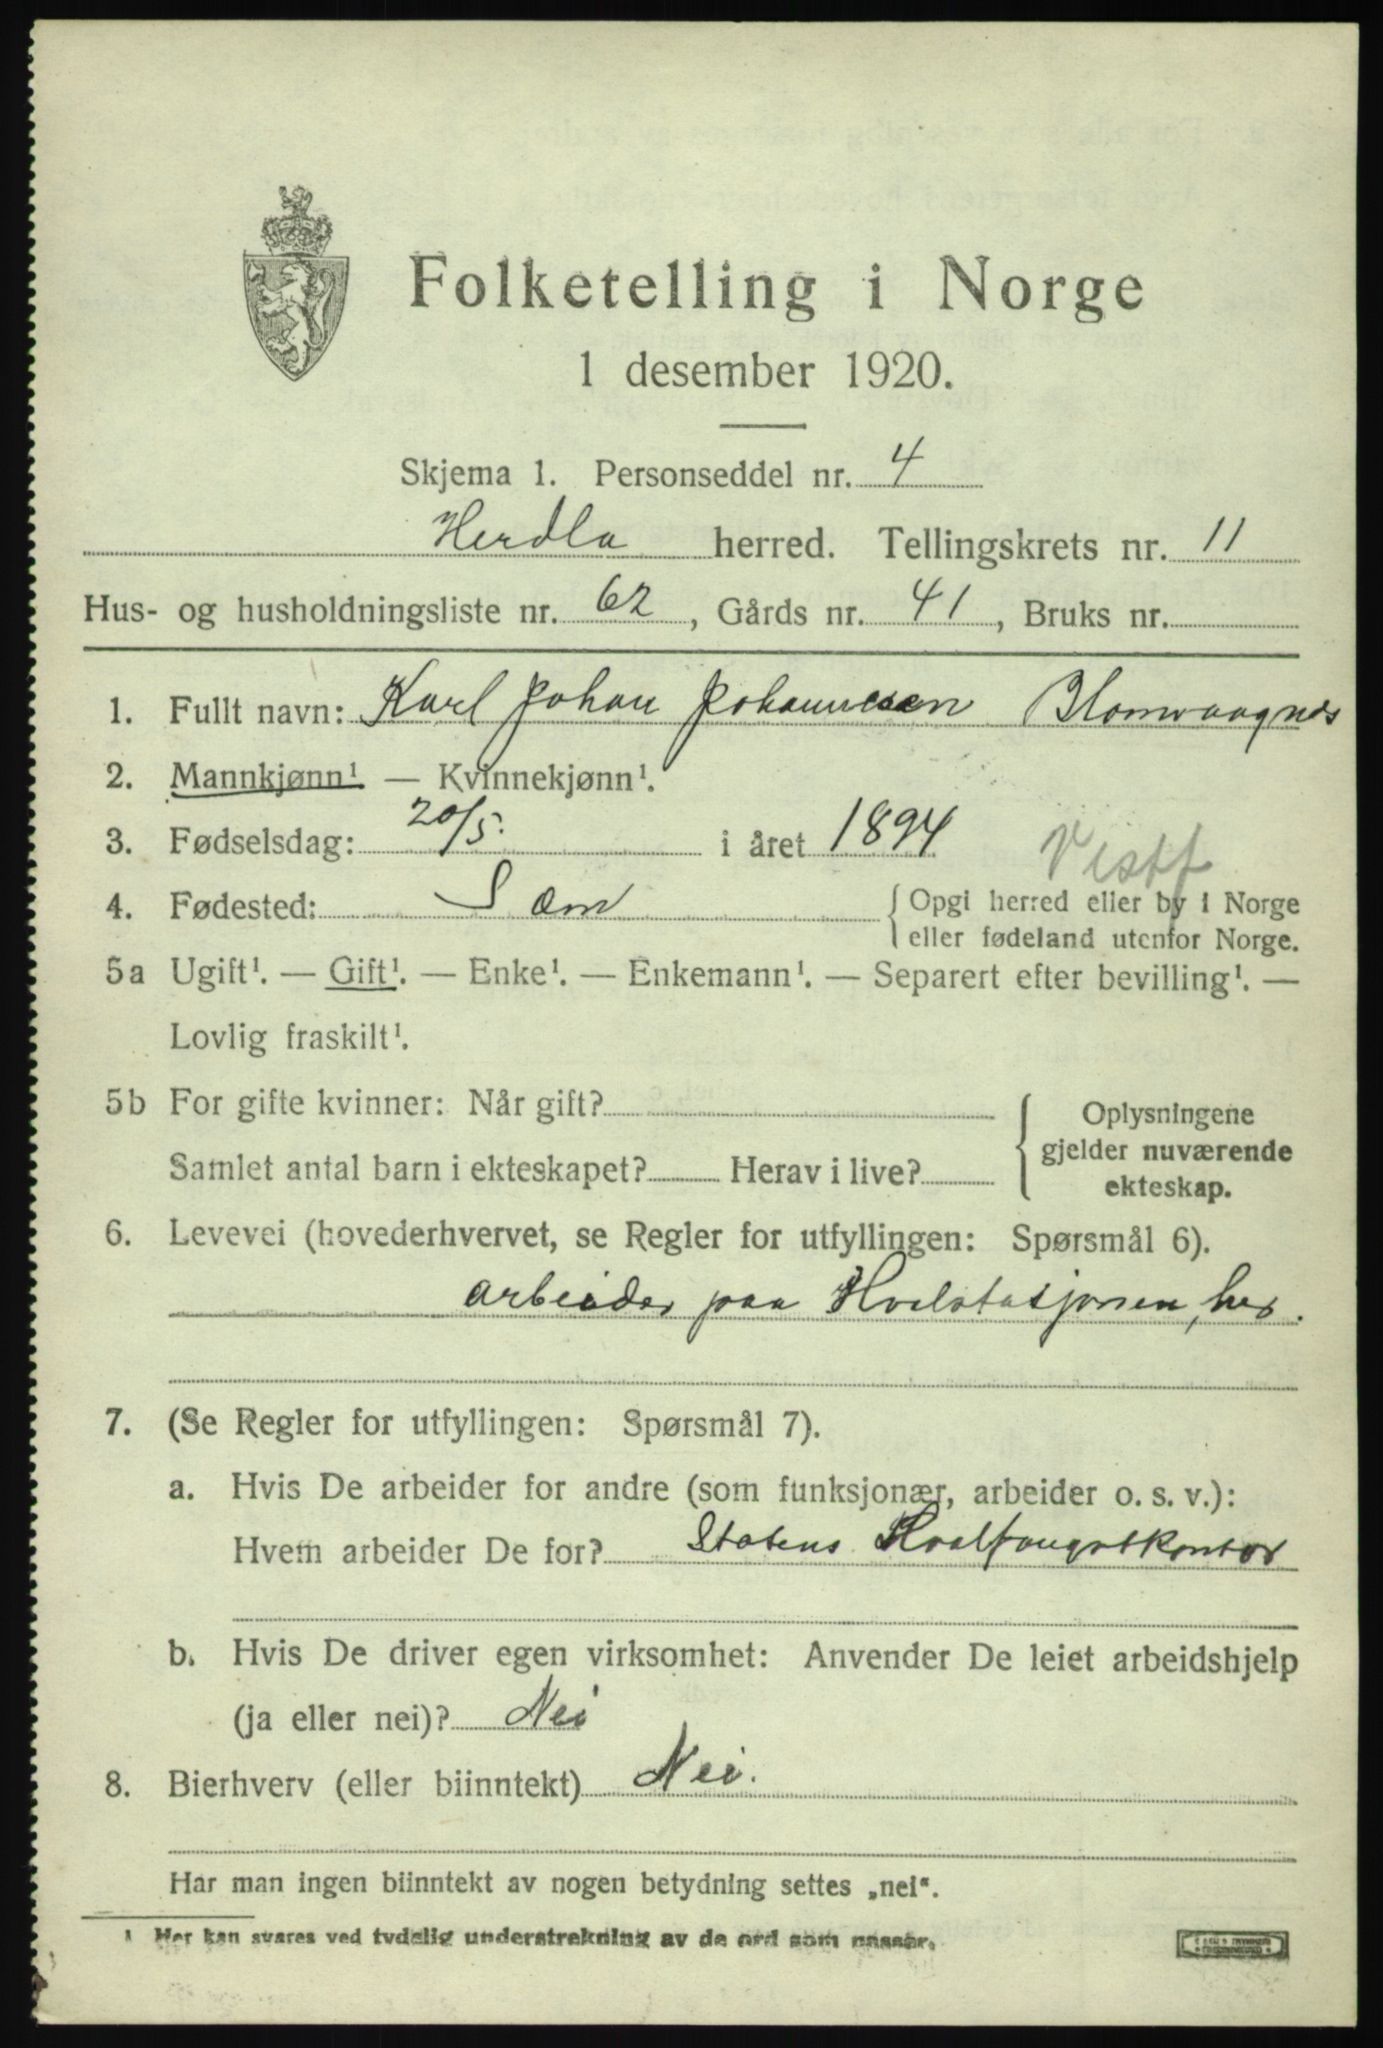 Folketelling i Norge
1 desember 1920.
Skjema 1. Personseddel nr. 4
Herdla herred. Tellingskrets nr. 11
Hus- og husholdningsliste nr. 62, Gårds nr. 41, Bruks nr.
1. Fullt navn: Karl Johan Johannesen Blomvaagnes
2. Mannkjønn¹ — Kvinnekjønn¹.
3. Fødselsdag: 20/5. i året 1894
4. Fødested: Sæm
Opgi herred eller by i Norge
eller fødeland utenfor Norge.
5a Ugift¹. — Gift¹. — Enke¹. — Enkemann¹. — Separert efter bevilling¹. —
Lovlig fraskilt¹.
5b For gifte kvinner: Når gift?
Samlet antal barn i ekteskapet? Herav i live?
Oplysningene
gjelder nuværende
ekteskap.
6. Levevei (hovederhvervet, se Regler for utfyllingen: Spørsmål 6).
arbeider paa Hvalstasjonen, her.
7. (Se Regler for utfyllingen: Spørsmål 7).
a. Hvis De arbeider for andre (som funksjonær, arbeider o. s. v.):
Hvem arbeider De for? Statens Hvalfangstkontor
b. Hvis De driver egen virksomhet: Anvender De leiet arbeidshjelp
(ja eller nei)? Nei
8. Bierhverv (eller biinntekt) Nei.
Har man ingen biinntekt av nogen betydning settes „nei“.
¹ Her kan svares ved tydelig understrekning av de ord som passer.